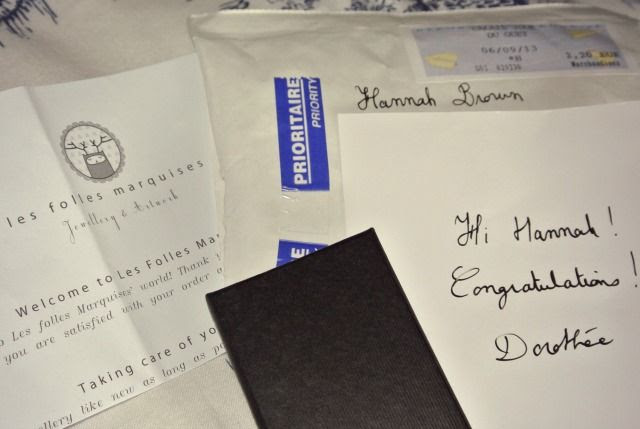 les folles marquises
Jewellery & Artwork
Welcome to Les Folles Ma
Les folles Marquises' world! Thank
you are satisfied with your order
Taking care of yo
ellery like new as long as po
PRIORITAIRE
PRIORITY
DU GUET
06/09/13
2,20 EUR
Hannah Brown
Hi Hannah!
Congratulations!
Dorothée